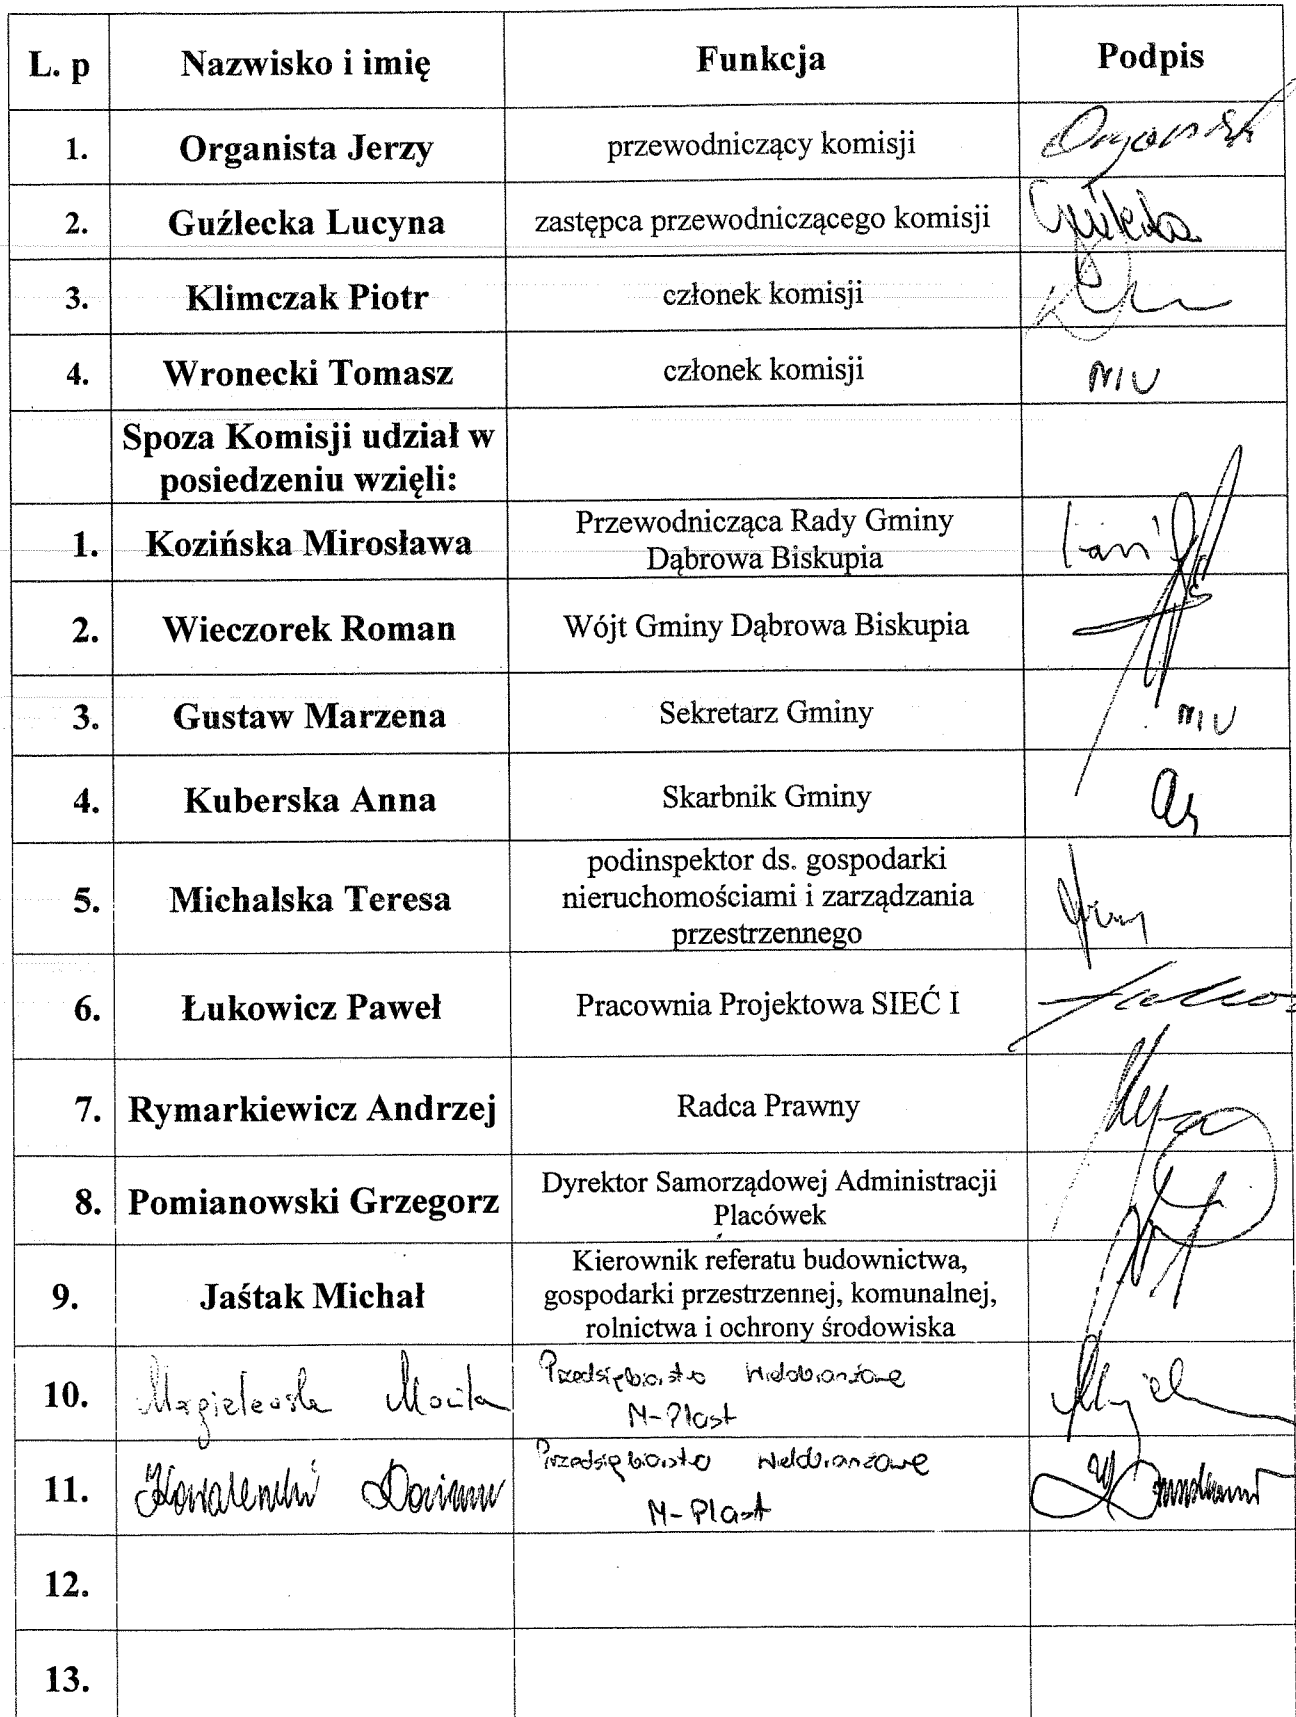 L. p Nazwisko i imię Funkcja Podpis
1. Organista Jerzy przewodniczący komisji
2. Guźlecka Lucyna zastępca przewodniczącego komisji
3. Klimczak Piotr członek komisji
4. Wronecki Tomasz członek komisji
Spoza Komisji udział w
posiedzeniu wzięli:
1. Kozińska Mirosława Przewodnicząca Rady Gminy
Dąbrowa Biskupia
2. Wieczorek Roman Wójt Gminy Dąbrowa Biskupia
3. Gustaw Marzena Sekretarz Gminy
4. Kuberska Anna Skarbnik Gminy
5. Michalska Teresa podinspektor ds. gospodarki
nieruchomościami i zarządzania
przestrzennego
6. Łukowicz Paweł Pracownia Projektowa SIEĆ I
7. Rymarkiewicz Andrzej Radca Prawny
8. Pomianowski Grzegorz Dyrektor Samorządowej Administracji
Placówek
9. Jaśtak Michał Kierownik referatu budownictwa,
gospodarki przestrzennej, komunalnej,
rolnictwa i ochrony środowiska
10.
N-Plast
11.
N-Plast
12.
13.